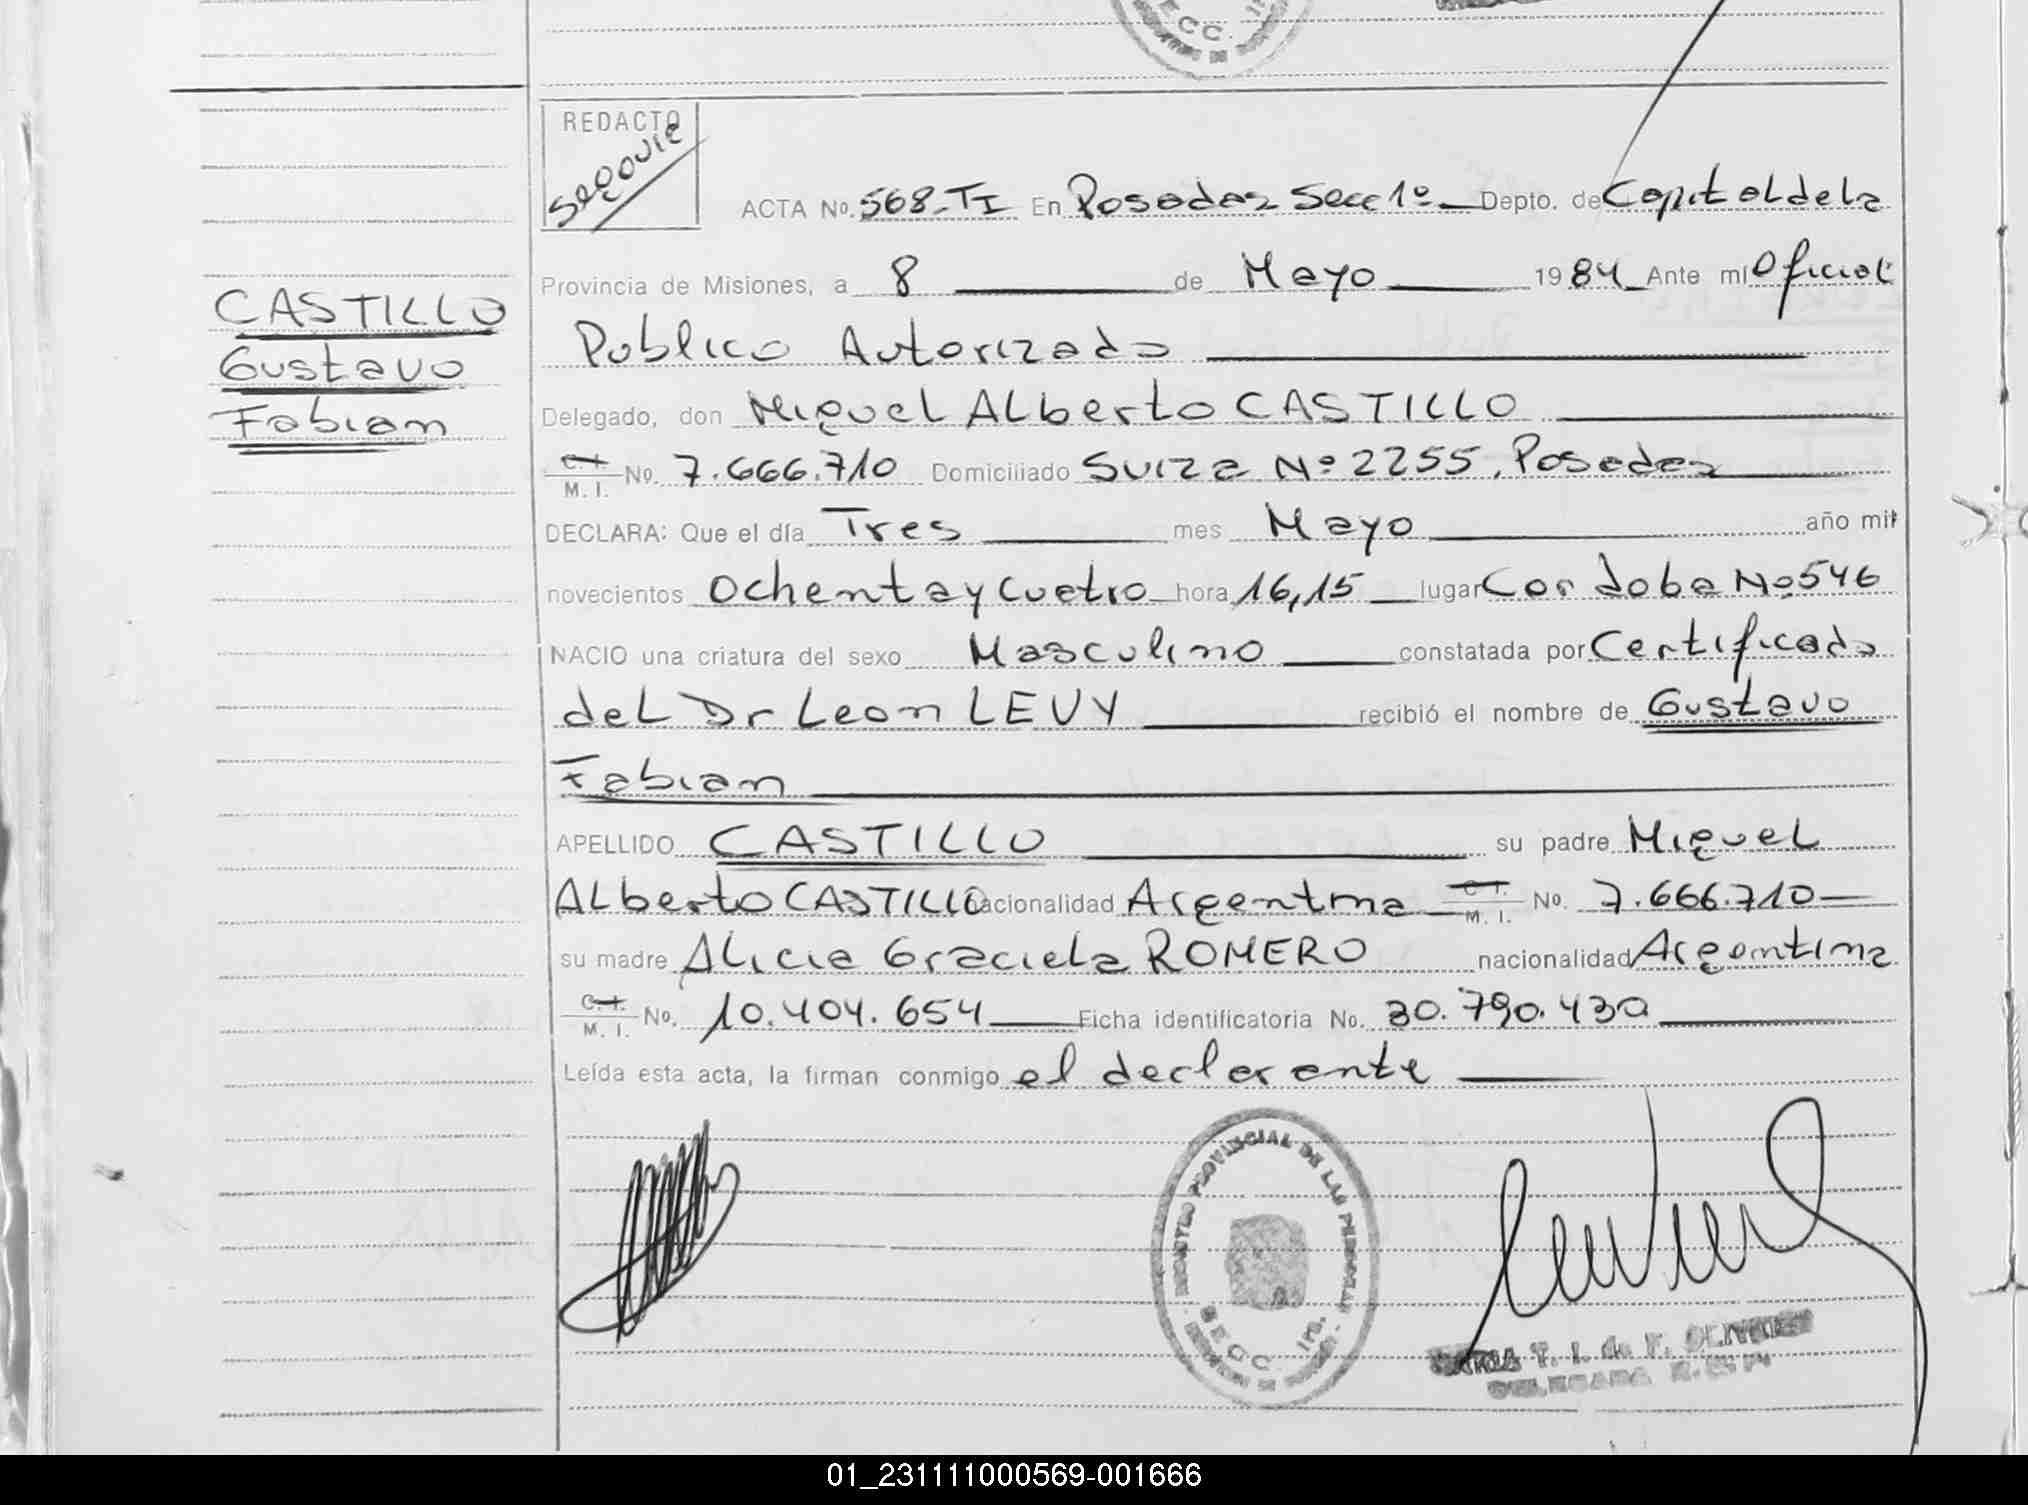 E.C.C. 1
REDACTO
Segovie
ACTA No. 568-TI En Posadas Secc 1º Depto. de Capital de la
Provincia de Misiones, a 8 de Mayo 1984 Ante mí Oficial
Publico Autorizado
CASTILLO
Gustavo
Fabian
Delegado, don Miguel Alberto CASTILLO
C. I. M. I. No. 7.666.710 Domiciliado Suiza Nº 2255, Posadas
DECLARA: Que el día Tres mes Mayo año mil
novecientos Ochenta y Cuatro hora 16,15 lugar Cordoba Nº 546
NACIO una criatura del sexo Masculino constatada por Certificado
del Dr Leon LEVY recibió el nombre de Gustavo
Fabian
APELLIDO CASTILLO su padre Miguel
Alberto CASTILLO nacionalidad Argentina C. I. M. I. No. 7.666.710
su madre Alicia Graciela ROMERO nacionalidad Argentina
C. I. M. I. No. 10.404.654 Ficha identificatoria No. 30.790.430
Leída esta acta, la firman conmigo el declarante
REGISTRO PROVINCIAL DE LAS PERSONAS
SECC. 1ra.
T. I. de F.
DELEGADA
01_231111000569-001666